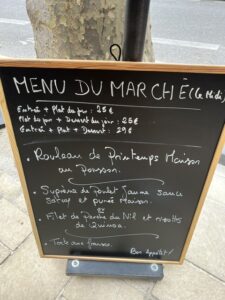 MENU DU MARCHÉ (le Midi)
Entrée + Plat du jour : 25€
Plat du jour + Dessert du jour : 25€
Entrée + Plat + Dessert : 29€
• Rouleau de Printemps Maison
au Poisson.
• Suprême de Poulet Jaune sauce
et purée Maison.
ou
• Filet de Perche du Nil et risotto
de Quinoa.
• Tarte aux fraises.
Bon Appétit!